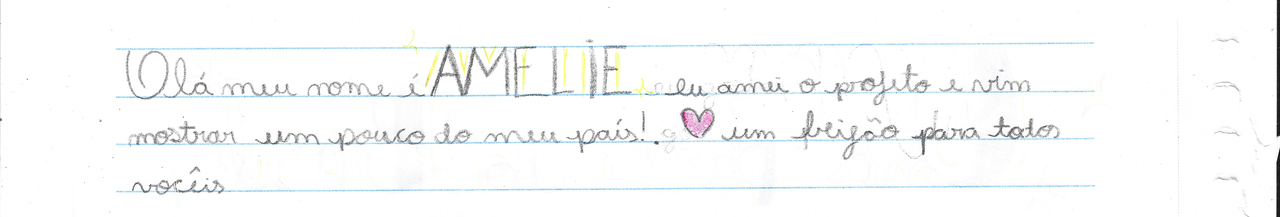 Olá meu nome é AMELIE eu amei o projeto e vim
mostrar um pouco do meu país!. um beijão para todos
vocêis